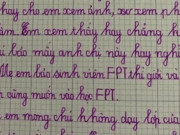 hay cho em xem ảnh, xu xem
em xem thấy hay chẳng h
bảo máy anh chỉ này hay nghi
Mẹ em bảo sinh viên FPT khi giới và
cũng muốn vào học FPT.
em mong chú không dạy lớp của